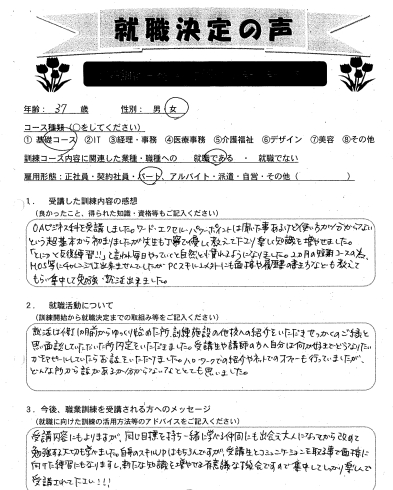 就職決定の声
年齢： 37 歳　性別： 男 ・ 女
コース種類（○をしてください）
① 基礎コース ②IT ③経理・事務 ④医療事務 ⑤介護福祉 ⑥デザイン ⑦美容 ⑧その他
訓練コース内容に関連した業種・職種への　就職である ・ 就職でない
雇用形態：正社員・契約社員・パート、アルバイト・派遣・自営・その他（　）
１．受講した訓練内容の感想
（良かったこと、得られた知識・資格等もご記入ください）
OAビジネス科を受講しました。ワード・エクセル・パワーポイントは
という超基本から初まりましたが先生も丁寧で優しく教えて下さり楽しく知識も増やせました。
「とにかく反復練習!!」と言われ毎日やっていくと自然と慣れるようになりました。2ヵ月の短期コースの為、
MOS等にチャレンジは出来ませんでしたが PCスキル以外にも面接や履歴書の書き方なども教えて
もらい集中して勉強・就活出来ました。
２．就職活動について
（訓練開始から就職決定までの取組み等をご記入ください）
就活は
と思い面談していただいた所内定をいただきました。受講生や講師の方へ自分は何が好きでどうなりたい
かを
どんな所から話があるか分からないなととても思いました。
３．今後、職業訓練を受講される方へのメッセージ
（就職に向けた訓練の活用方法等のアドバイスをご記入ください）
受講内容にもよりますが、同じ目標を持ち一緒に学べる仲間にも出会え大人になってから改めて
勉強する大切も学べました。自身のスキルUPはもちろんですが、受講生とコミュニケーションを取る事で面接に
向けた練習にもなりますし、新たな知識を増やせる有意義な機会ですので集中してしっかり学んで
受講されて下さい!!!